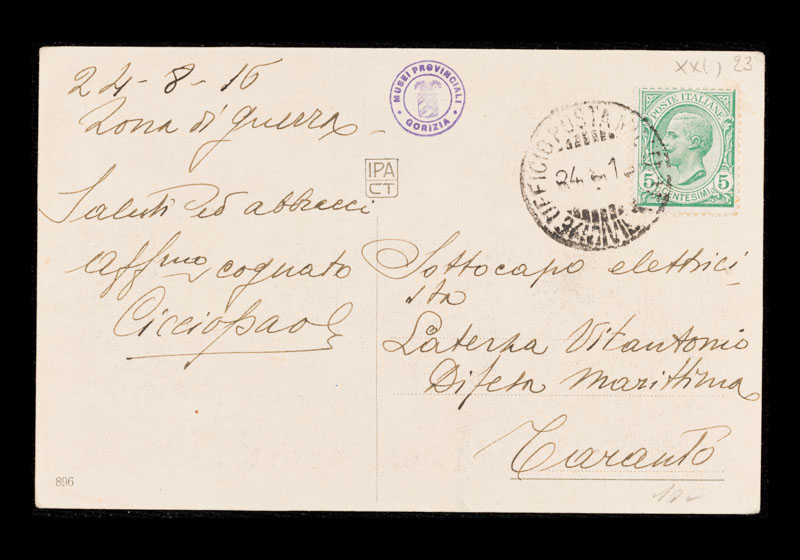 24-8-16
Zona di guerra -
Saluti ed abbracci
Affmo cognato
Cicciopaolo
MUSEI PROVINCIALI
GORIZIA
IPA
CT
896
XXI, 23
POSTE ITALIANE
5 5
CENTESIMI
UFFICIO POSTA MIL
24. 8. 1
Sottocapo elettrici-
sta
Laterza Vitantonio
Difesa Marittima
Taranto